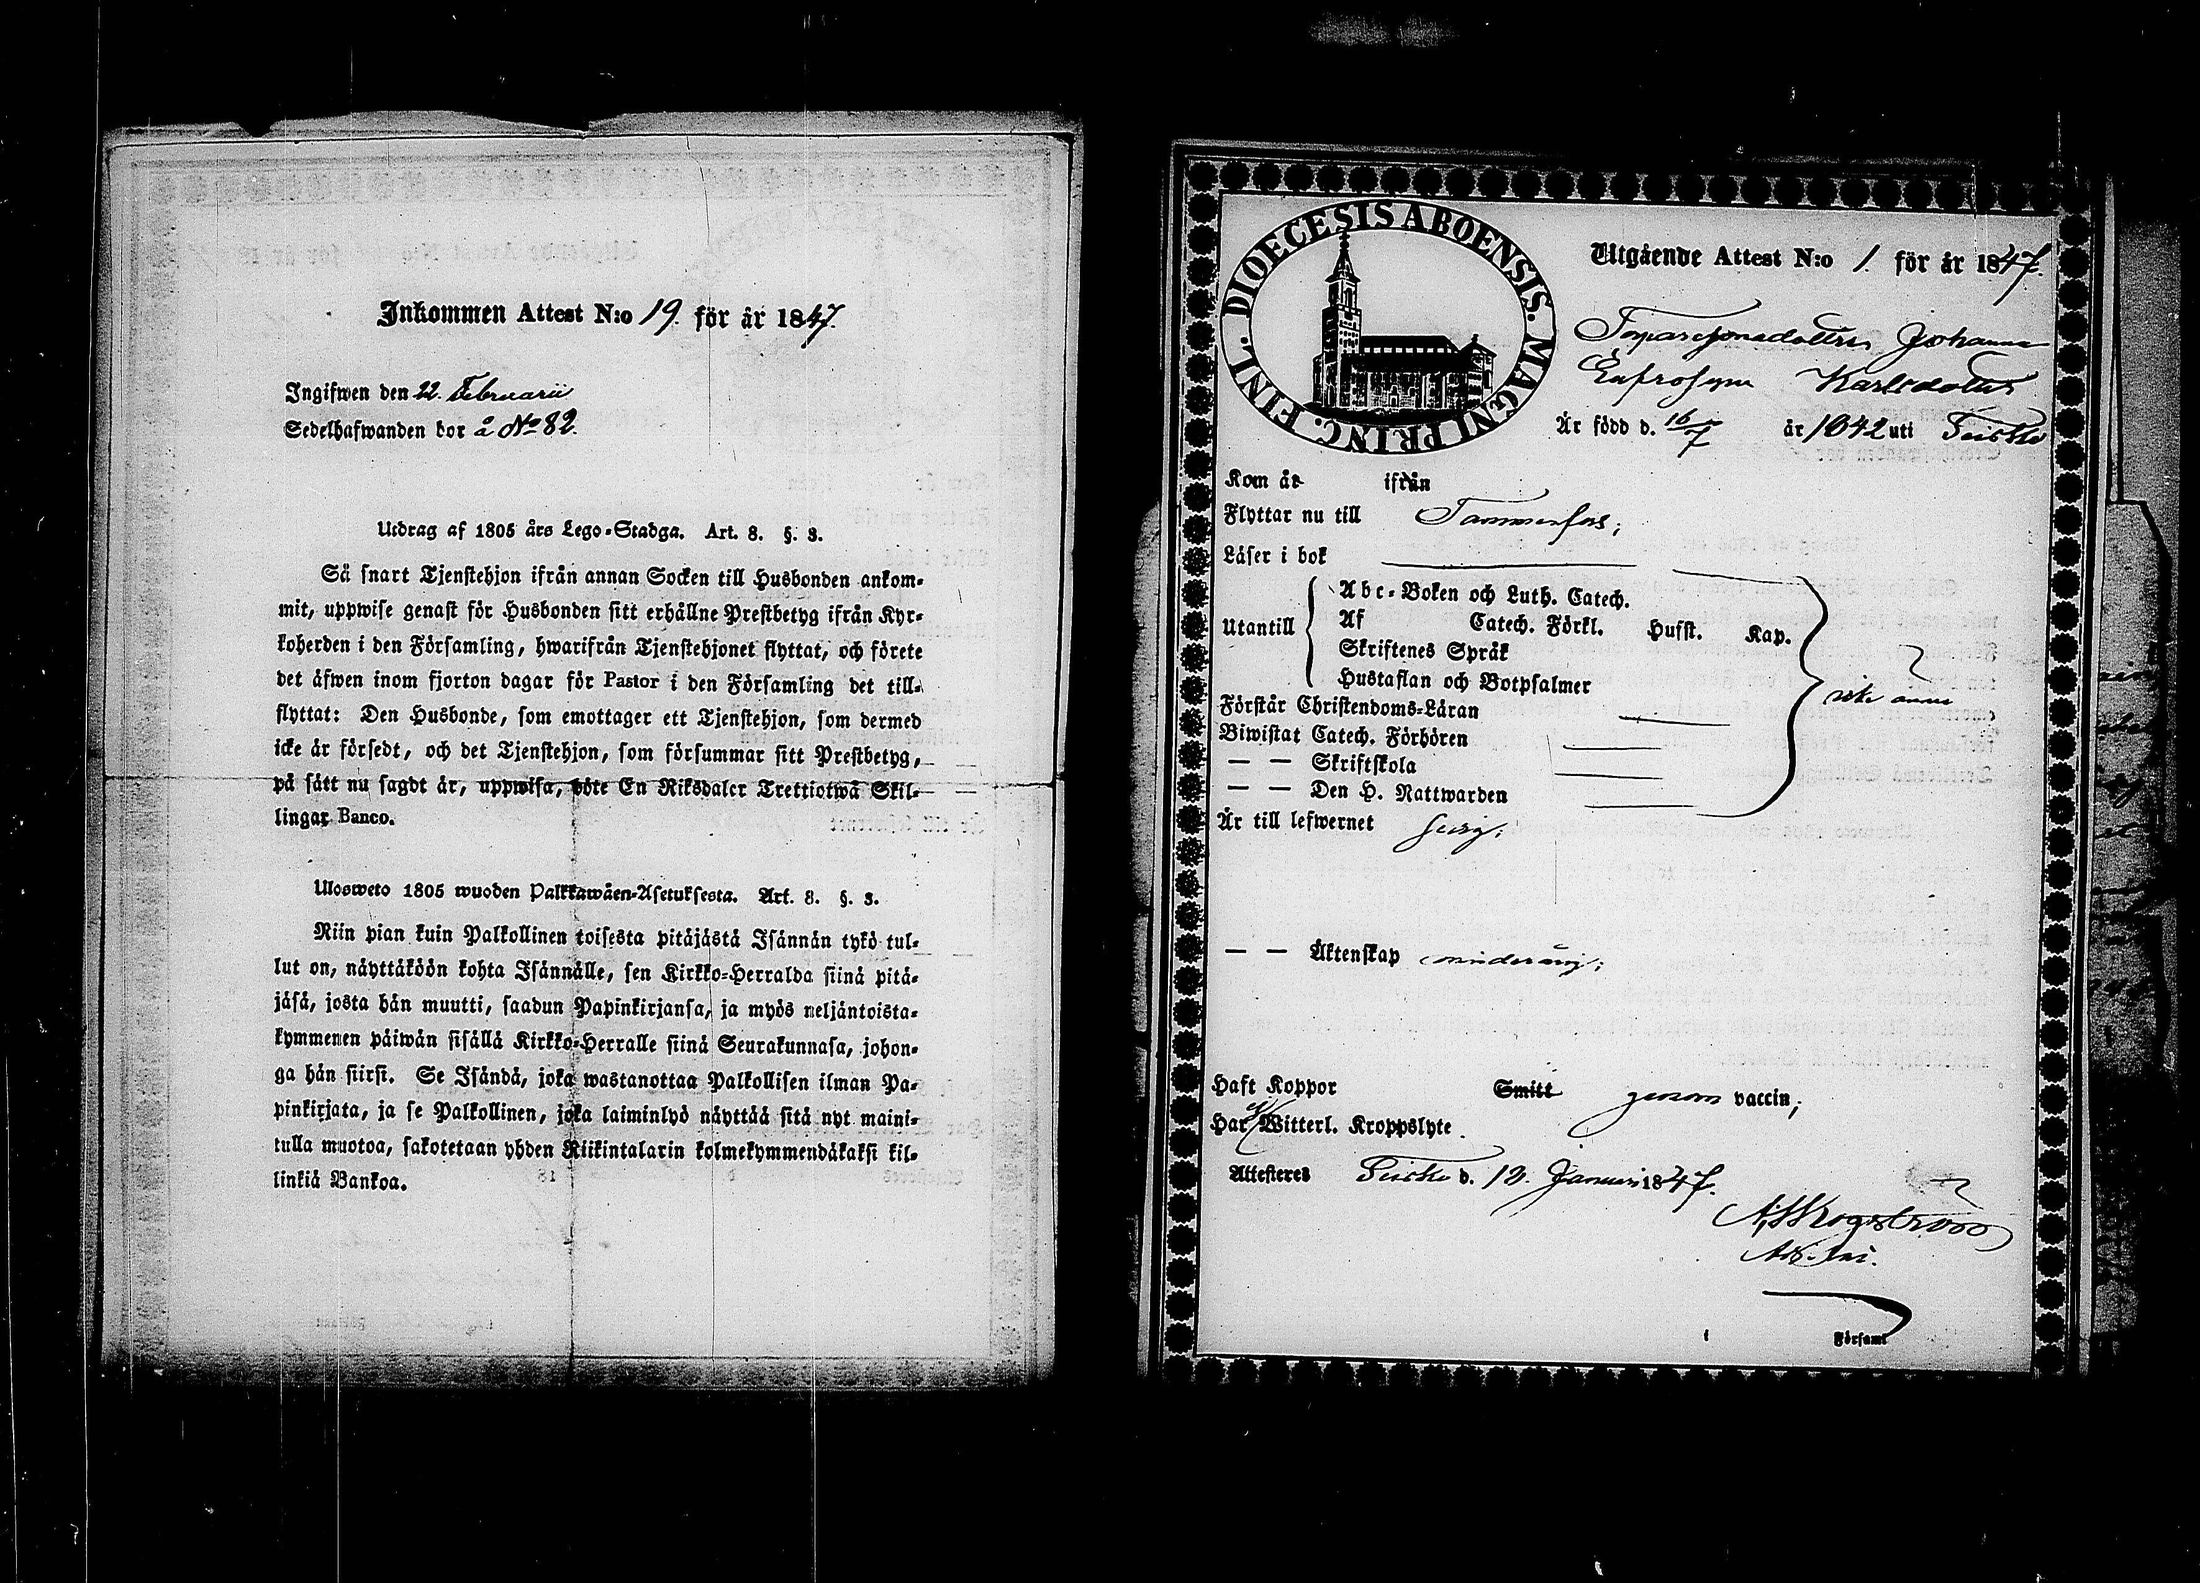 Inkommen Attest N:o 19. för år 1847.
Ingifwen den 22. Februarii
Sedelhafwanden bor å No 82.
Utdrag af 1805 års Lego-Stadga. Art. 8. §. 3.
Så snart Tjenstehjon ifrån annan Socken till Husbonden ankom-
mit, uppwise genast för Husbonden sitt erhållne Prestbetyg ifrån Kyr-
koherden i den Församling, hwarifrån Tjenstehjonet flyttat, och förete
det äfwen inom fjorton dagar för Pastor i den Församling det till-
flyttat: Den Husbonde, som emottager ett Tjenstehjon, som dermed
icke är försedt, och det Tjenstehjon, som försummar sitt Prestbetyg,
på sätt nu sagdt är, uppwisa, böte En Riksdaler Trettiotwå Skil-
lingar Banco.
Ulosweto 1805 wuoden Palkkawäen-Asetuksesta. Art. 8. §. 3.
Niin pian kuin Palkollinen toisesta pitäjästä Isännän tykö tul-
lut on, näyttäköön kohta Isännälle, sen Kirkko-Herralda siinä pitä-
jäsä, josta hän muutti, saadun Papinkirjansa, ja myös neljäntoista-
kymmenen päiwän sisällä Kirkko-Herralle siinä Seurakunnasa, johon-
ga hän siirsi. Se Isändä, joka wastanottaa Palkollisen ilman Pa-
pinkirjata, ja se Palkollinen, joka laiminlyö näyttää sitä nyt maini-
tulla muotoa, sakotetaan yhden Riikintalarin kolmekymmendäkaksi kil-
linkiä Bankoa.
DIOECESIS ABOENSIS. MAGNI PRINC. FINL.
Utgående Attest N:o 1. för år 1847.
Johanna
Eufrosyna Karlsdotter
Är född d. 16/7 år 1842 uti Teisko
Kom år ifrån
Flyttar nu till Tammerfors;
Läser i bok
Utantill
Abc-Boken och Luth. Catech.
Af Catech. Förkl. Husst. Kap.
Skriftenes Språk
Hustaflan och Botpsalmer
icke ännu
Förstår Christendoms-Läran
Biwistat Catech. Förhören
— — Skriftskola
— — Den H. Nattwarden
Är till lefwernet
— — Äktenskap minderårig;
Haft Koppor Smitt genom vaccin;
Har Witterl. Kroppslyte.
Attesteres Teisko d. 12. Januari 1847.
Församl